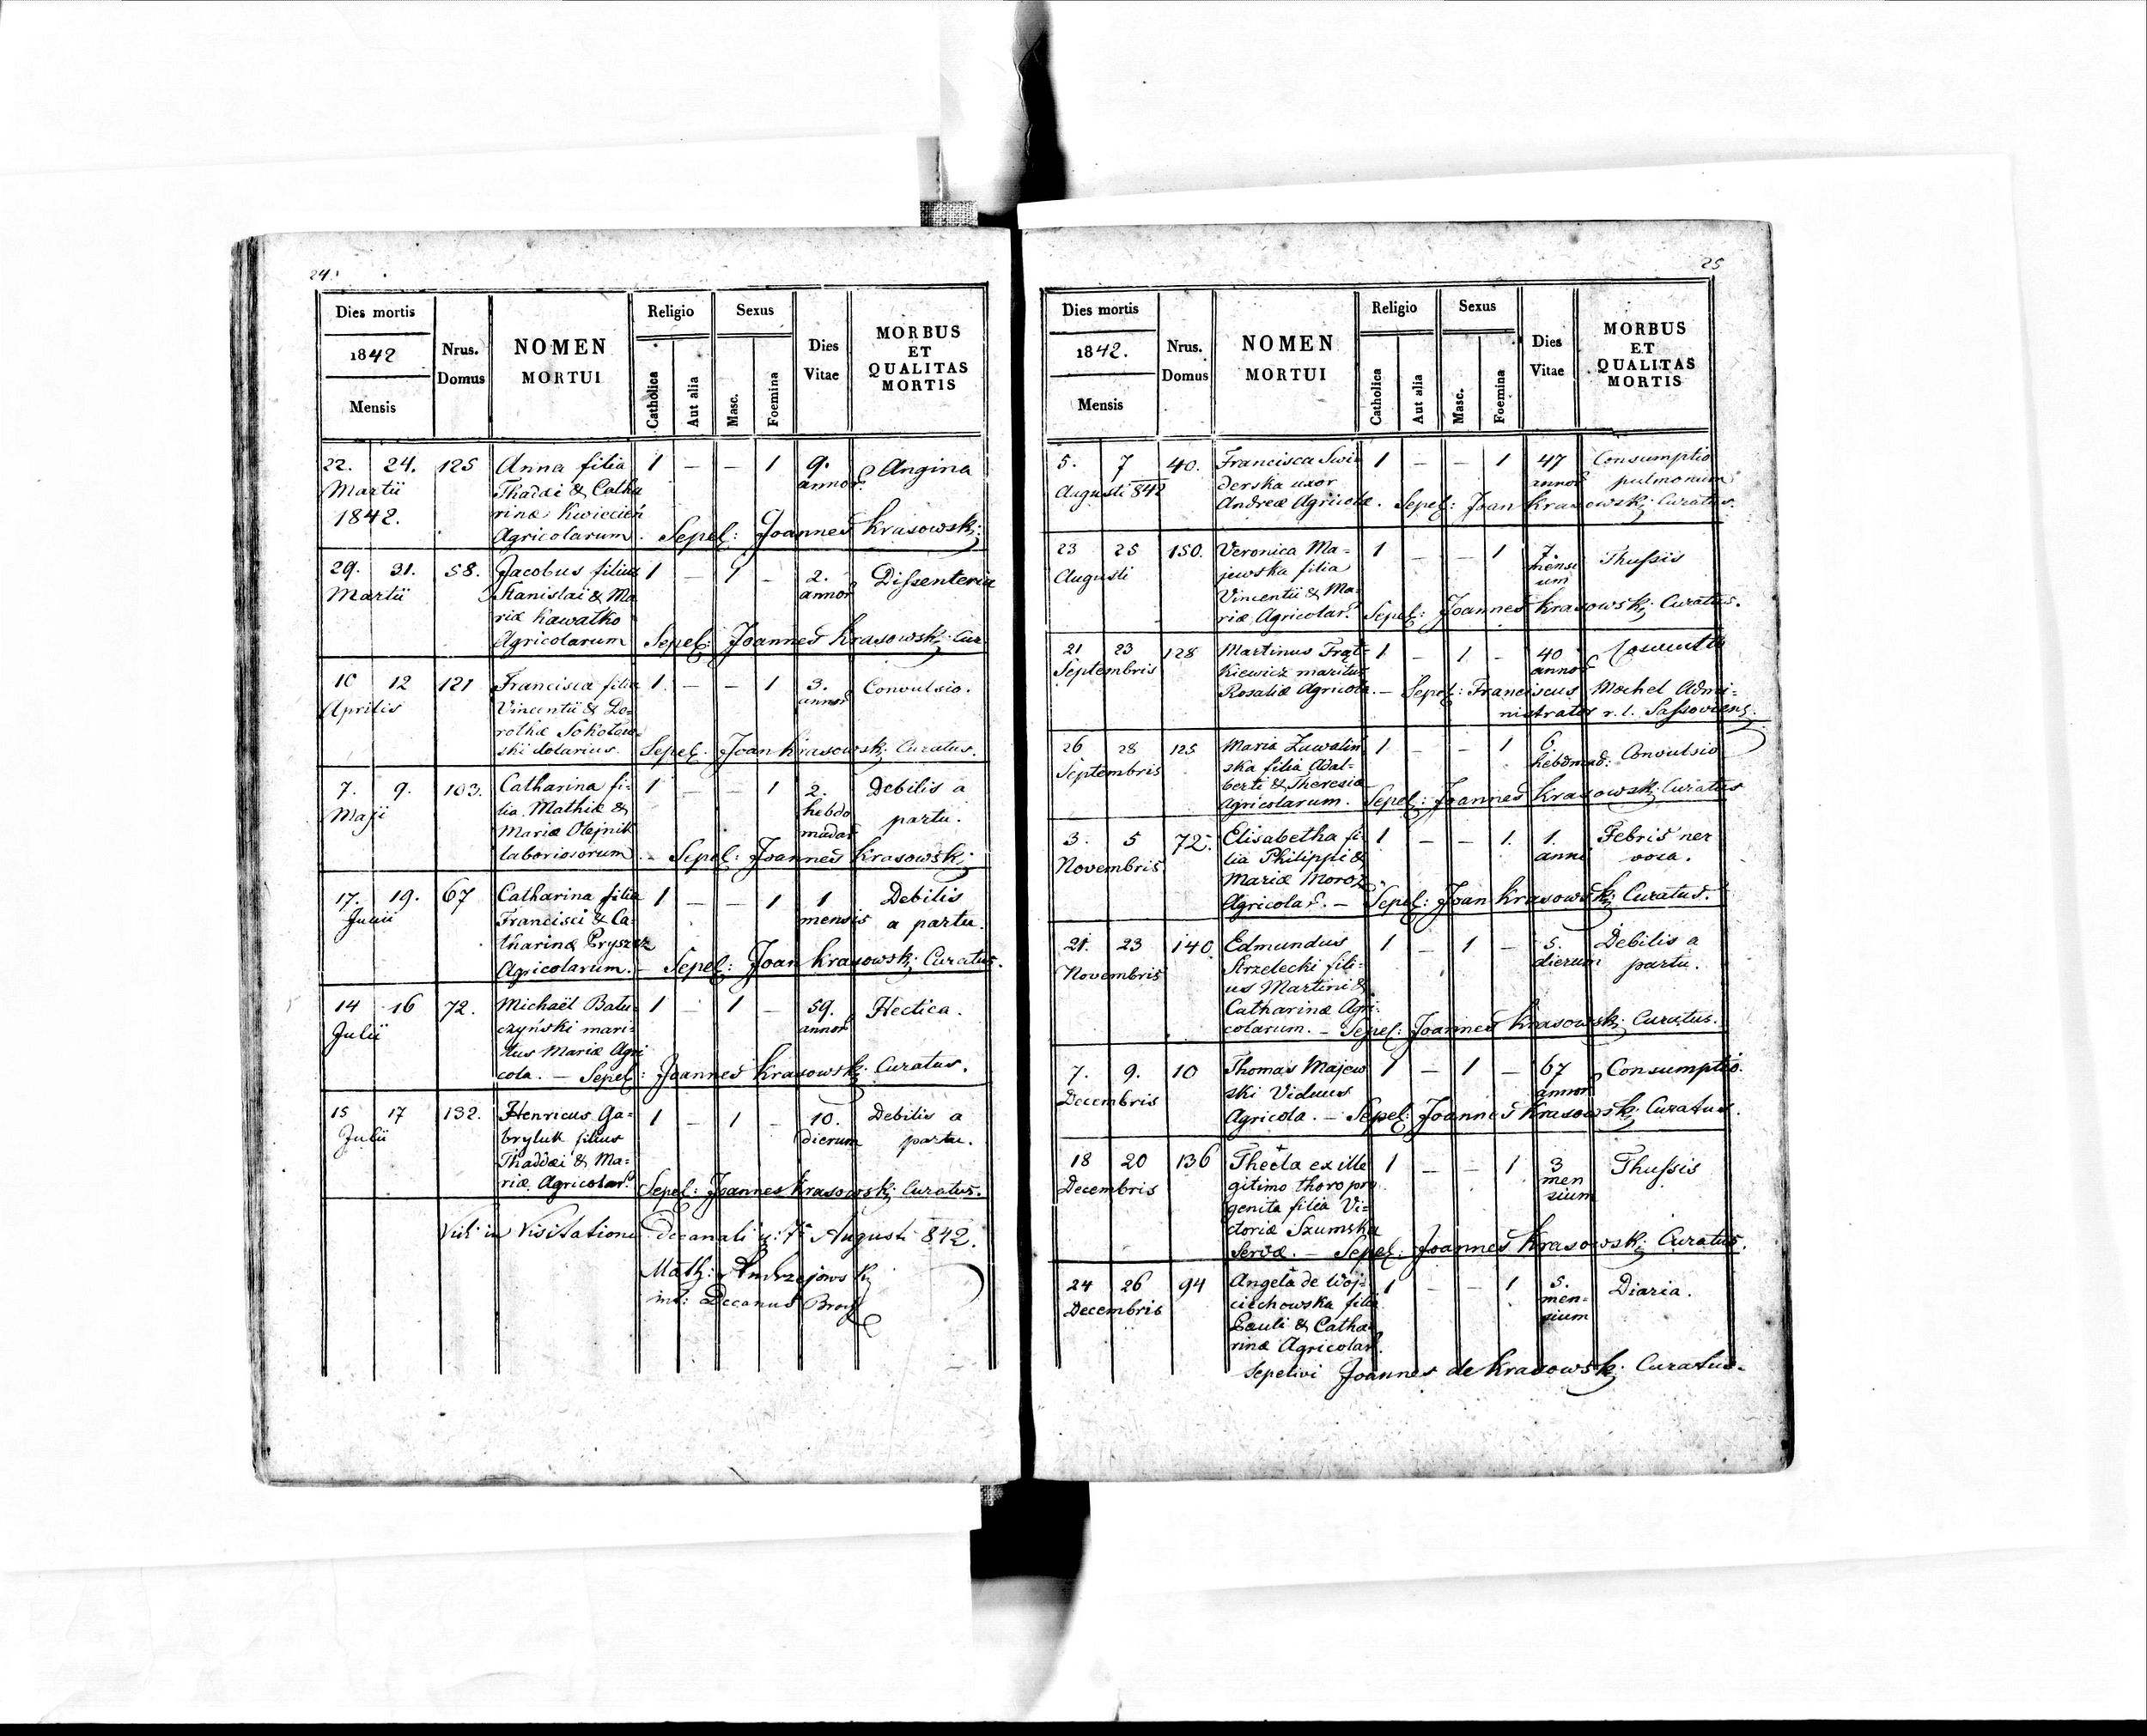 24.
Dies mortis
1842
Mensis
Nrus.
Domus
NOMEN
MORTUI
Religio
Catholica
Aut alia
Sexus
Masc.
Foemina
Dies
Vitae
MORBUS
ET
QUALITAS
MORTIS
22. 24. 125 Anna filia 1 – – 1 9. Angina
Martii Thadæi & Catha annor.
1842. rinæ Kwiecień
Agricolarum. Sepel: Joannes Krasowski
29. 31. 58. Jacobus filius 1 – 1 – 2. Dissenteria
Martii Stanislai & Ma annor
riæ Kawałko
Agricolarum Sepel: Joannes Krasowski Cur
10 12 121 Francisca filia 1. – – 1 3. Convulsio.
Aprilis Vincentii & Do= annor
rothæ Sokołow=
ski dolarius. Sepel. Joan Krasowski Curatus.
7. 9. 103. Catharina fi= 1 – – 1 2. Debilis a
Maji lia Mathiæ & hebdo partu.
Mariæ Olejnik madar
laboriosorum – Sepel: Joannes Krasowski
17. 19. 67 Catharina filia 1 – – 1 1 Debilis
Junii Francisci & Ca= mensis a partu.
tharinæ Pryszcz
Agricolarum. – Sepel: Joan Krasowski Curatus.
14 16 72. Michaël Batu= 1 – 1 – 59. Hectica.
Julii czyński mari= annor
tus Mariæ Agri
cola. – Sepel: Joannes Krasowski Curatus.
15 17 132. Henricus Ga= 1 – 1 – 10. Debilis a
Julii bryluk filius dierum partu.
Thaddæi & Ma=
riæ Agricolar. Sepel: Joannes Krasowski Curatus.
Vidi in Visitatione decanali 7 Augusti 842.
Math: Andrzejowski
Decanus Brod
25
Dies mortis
1842.
Mensis
Nrus.
Domus
NOMEN
MORTUI
Religio
Catholica
Aut alia
Sexus
Masc.
Foemina
Dies
Vitae
MORBUS
ET
QUALITAS
MORTIS
5. 7 40. Francisca Swi= 1 – – 1 47 Consumptio
Augusti 842 derska uxor annor pulmonum
Andreæ Agricolæ. Sepel: Joan Krasowski Curatus.
23 25 150. Veronica Ma= 1 – – 1 7. Thussis
Augusti jewska filia mensi
Vincentii & Ma= um
riæ Agricolar. Sepel: Joannes Krasowski Curatus.
21 23 128 Martinus Frąt= 1 – 1 – 40
Septembris kiewicz maritus annor
Rosaliæ Agricola. – Sepel: Franciscus Mochel Admi=
nistrator r. l. Sassoviens.
26 28 125 Maria Zuwalin 1 – – 1 6. Convulsio
Septembris ska filia Adal= hebdmad:
berti & Theresiæ
Agricolarum. Sepel: Joannes Krasowski Curatus
3. 5 72. Elisabetha fi= 1 – – 1. 1. Febris ner
Novembris lia Philippi & anni vosa.
Mariæ Moroz
Agricolar. – Sepel: Joan Krasowski Curatus.
21. 23 140 Edmundus 1 – 1 – 5. Debilis a
Novembris Strzelecki fili= dierum partu.
us Martini &
Catharinæ Agri=
colarum. – Sepel: Joannes Krasowski Curatus.
7. 9. 10 Thomas Majew 1 – 1 – 67 Consumptio.
Decembris ski Viduus annor
Agricola. – Sepel: Joannes Krasowski Curatus.
18 20 136 Thecla ex ille 1 – – 1 3 Thussis
Decembris gitimo thoro pro men
genita filia Vi= sium
ctoriæ Szumska
Servæ. – Sepel: Joannes Krasowski Curatus.
24 26 94 Angela de Woj= 1 – – 1 5. Diaria.
Decembris ciechowska filia men=
Pauli & Catha sium
rinæ Agricolar.
Sepelivi Joannes de Krasowski Curatus.